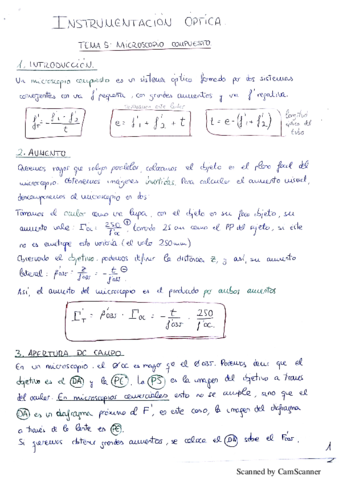 INSTRUMENTACIÓN ÓPTICA
TEMA 5: MICROSCOPIO COMPUESTO
1. INTRODUCCIÓN
Un microscopio compuesto es un sistema óptico formado por dos sistemas
convergentes con una f' pequeña, con grandes aumentos y una f' negativa.
e = f'1 + f'2 + t
t = e - (f'1 + f'2)
2. AUMENTO
Queremos rayos que salgan paralelos, colocamos el objeto en el plano focal del
microscopio. Obtenemos imágenes invertidas. Para calcular el aumento visual,
descomponemos el microscopio en dos
Tomamos el ocular como una lupa, con el objeto en su foco objeto, su
aumento valdrá: Γoc = 250/f'oc
Observando el objetivo, podemos definir la distancia z, y así, su aumento
lateral:
Así, el aumento del microscopio es el producto por ambos aumentos
3. APERTURA DE CAMPO
En un microscopio el Øoc es mayor que el Øobj. Podemos decir que el
objetivo es el DA y la PE, la PS es la imagen del objetivo a través
del ocular. En microscopios comerciales esto no se cumple, sino que el
DA es un diafragma próximo al F', en este caso, la imagen del diafragma
a través de la lente es PE.
Si queremos obtener grandes aumentos, se coloca el DA sobre el
1
Scanned by CamScanner